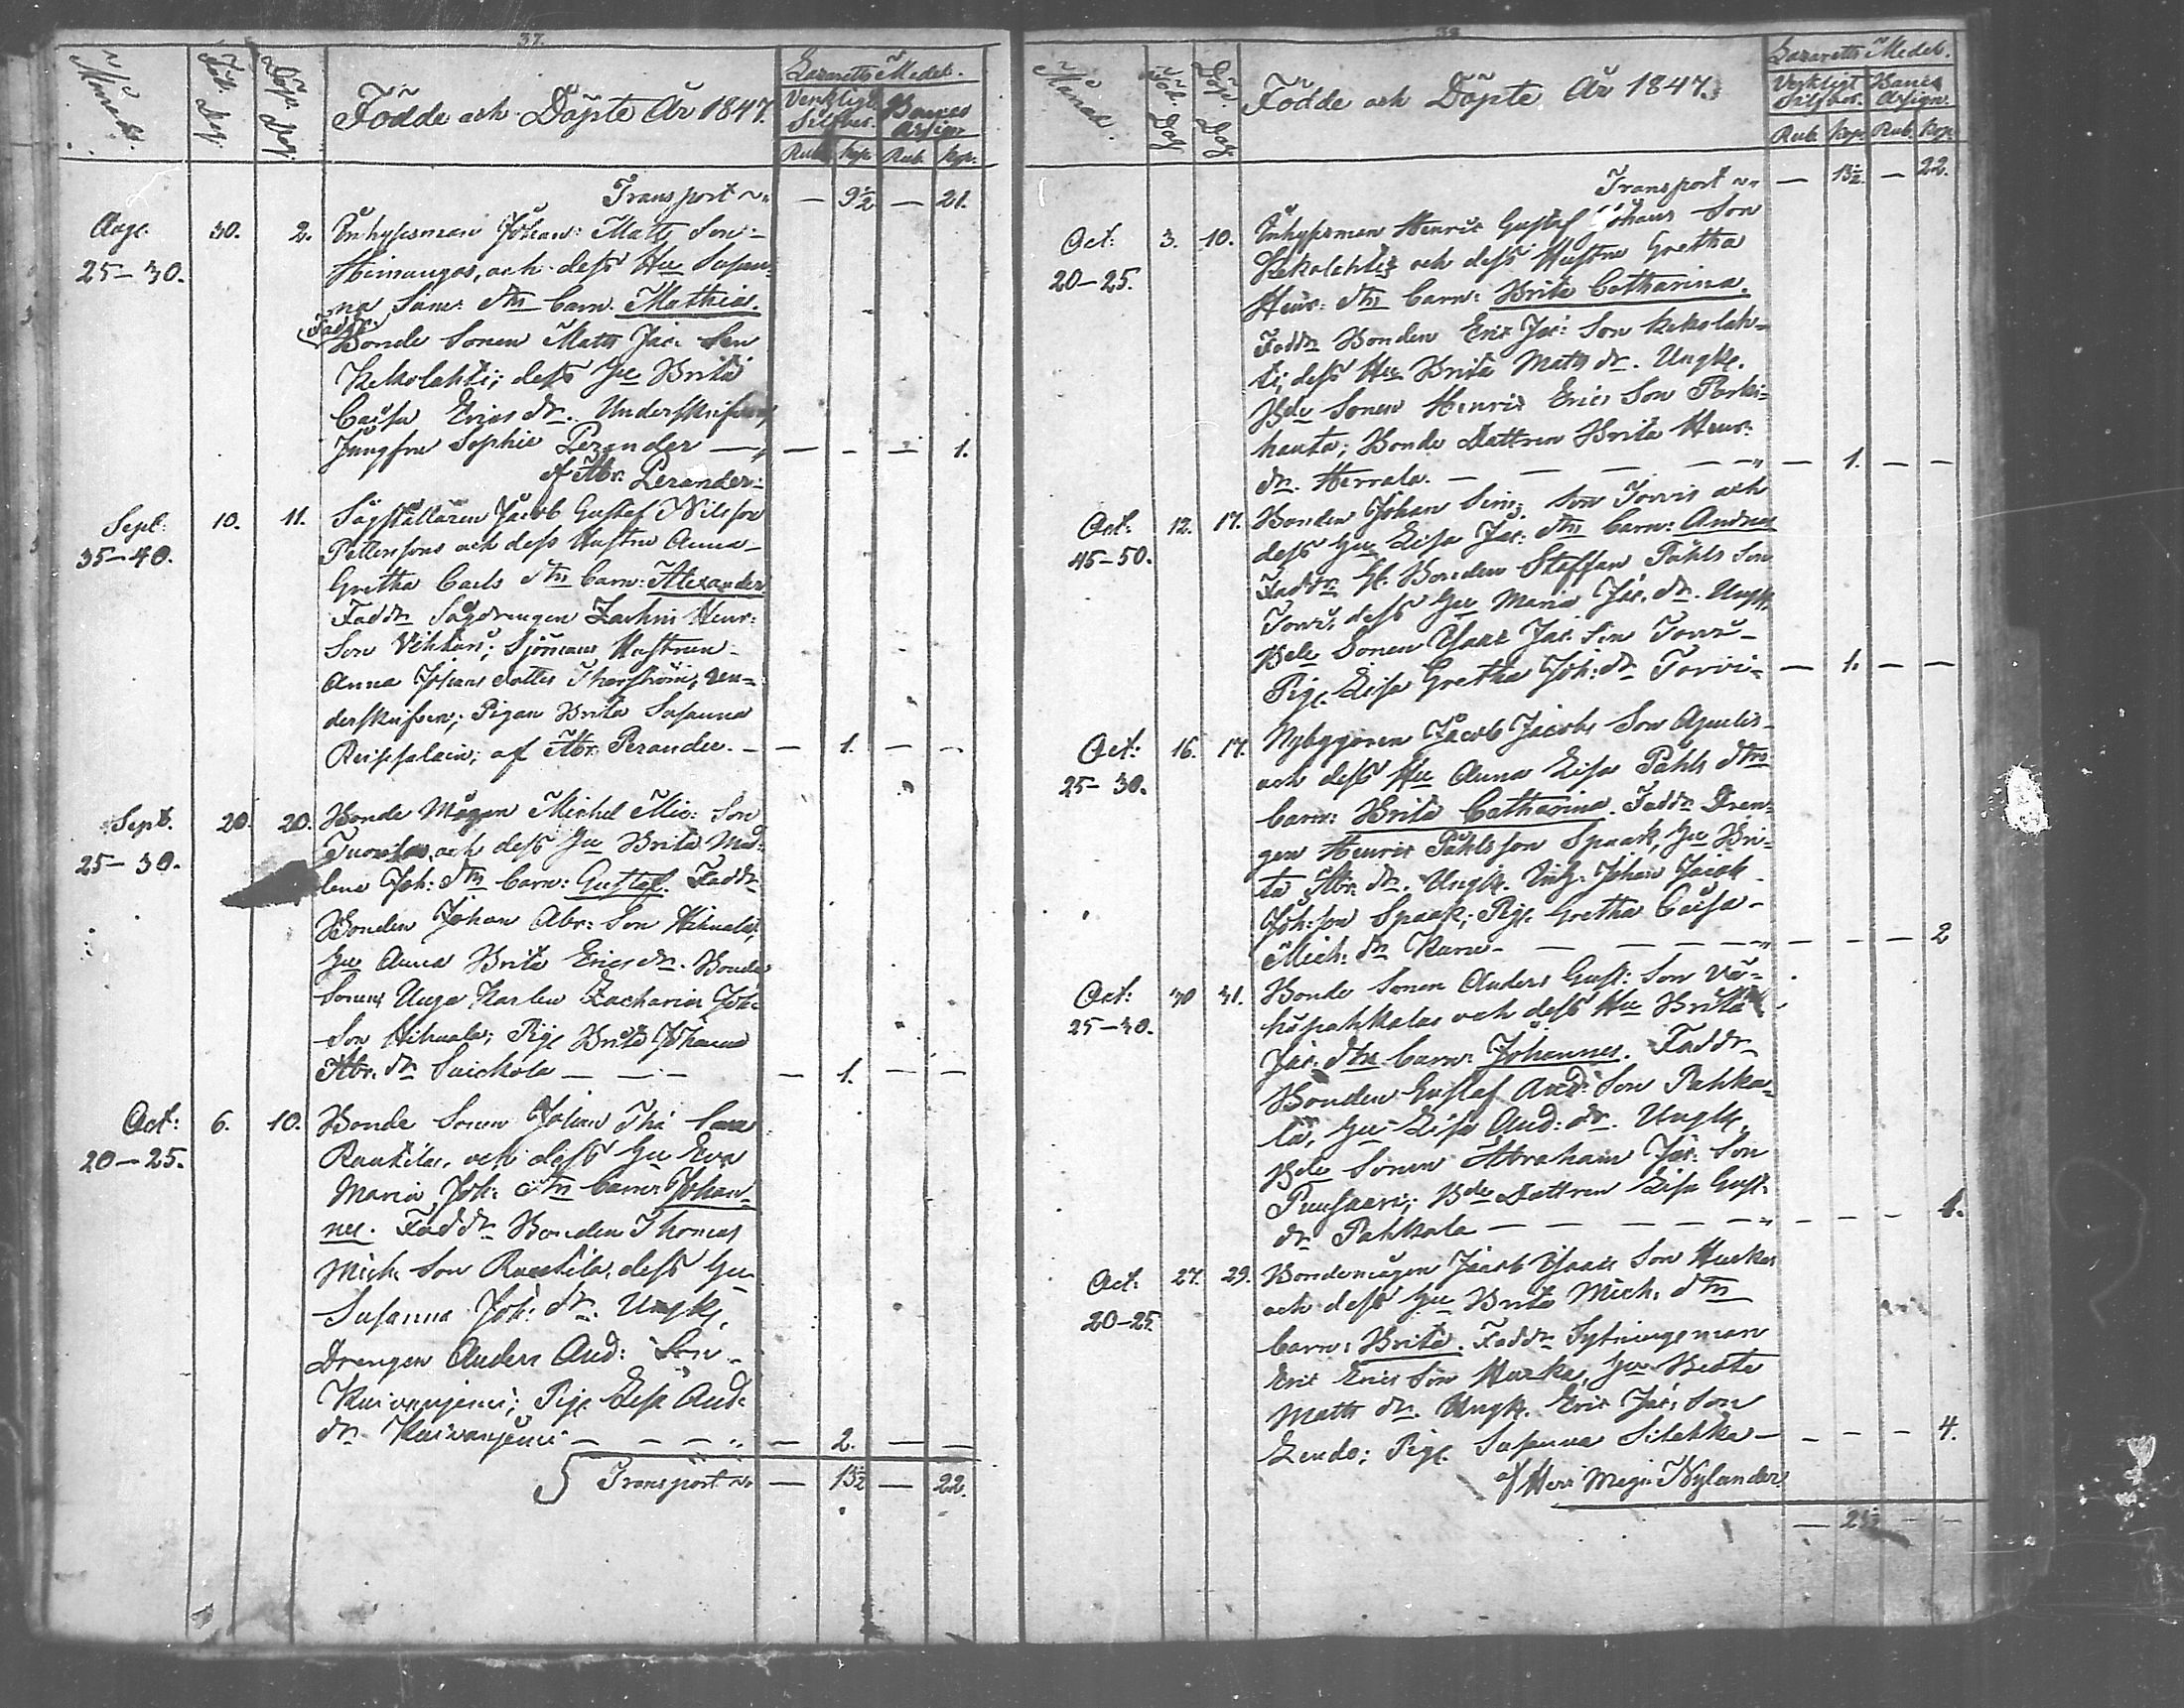 37.
Månad.
Föd. Dag.
Döp. Dag.
Födde och Döpte År 1847.
Lazaretts Medel.
Verkligt Silfver.
Banco Assign.
Rub. Kop. Rub. Kop.
Transport — 9½ — 21.
Aug. 30. 2. Inhysman Johan Matts Son
25-30. Heinaugas, och dess Hu Susan-
na Sim: dtrs barn: Mathias.
Faddr:
Bonde Sonen Matts Jac: Son
Kekolahti; dess Hu Brita
Caisa Erics dr. Underskrifven,
Jungfru Sophie Perander — — - — 1.
af Abr: Perander.
Sept: 10. 11. Sågställaren Jacob Gustaf Nilsson
35-40. Pettersons och dess Hustru Anna
Gretha Carls dtrs barn: Alexander
Faddr Sågdrengen Zachris Henr:
Son Vihtari; Sjömans Hustrun
Anna Johans dotter Therström; Un-
derskrifven; Pigan Brita Susanna
; af Abr: Perander. — — 1. — —
Sept. 20. 20. Bonde Mågen Michel Mic: Son
25-30. och dess Hu Brita Mad-
lena Joh: dtrs barn: Gustaf. Faddr
Bonden Johan Abr: Son Hihnala,
Hu Anna Brita Erics dr. Bonde
Sonen Unga Karlen Zacharias Joh:
Son Hihnala; Pig: Brita Johanna
Abr: dr Suickola — — — — 1. — —
Oct: 6. 10. Bonde Sonen Johan Tho: Sons
20-25. Rautila, och dess Hu Eva
Maria Joh: dtrs barn: Johan-
nes. Faddr Bonden Thomas
Mich: Son Rautila, dess Hu
Susanna Joh: dr. Ungk.
Drengen Anders And: Son
Kaivanjemi; Pig: Lisa And:
dr Kaivanjemi — — — — 2. — —
Transport — 13½ — 22.
38
Månad.
Föd. Dag
Döp. Dag
Födde och Döpte År 1847.
Lazaretts Medel.
Verkligt Silfver.
Banco Assign.
Rub. Kop. Rub. Kop.
Transport — 13½ — 22.
Oct: 3. 10. Inhysman Henric Gustaf Johans Son
20-25. Kekolahti och dess Hustru Gretha
Henr: dtrs barn: Brita Catharina.
Faddr Bonden Eric Jac: Son Kekolah-
ti, dess Hu Brita Matts dr. Ungk.
Bde Sonen Henric Erics Son Porki-
hauta; Bonde Dottren Brita Henr:
dr. Herrala. — — — — — 1. — —
Oct: 12. 17. Bonden Johan Sim: Son Torvis och
45-50. dess Hu Lisa Jac: dtrs barn: Andreas
Faddr H. Bonden Steffan Påhls Son
Torvi, dess Hu Maria Jac. dr. Ungk.
Bde Sonen Isaac Jac. Son Torvi
Pig. Lisa Gretha Joh: dr Torvi — — 1. — —
Oct: 16. 17. Nybyggaren Jacob Jacobs Son
25-30. och dess Hu Anna Lisa Påhls dtrs
barn: Brita Catharina. Faddr Dren-
gen Henric Påhlsson Spaak, Hu Bri-
ta Abr: dr. Ungk. Johan Jacob
Joh: son Spaak; Pig. Gretha Caisa
Mich: dr Kara — — — — — — — 2
Oct: 30 31. Bonde Sonen Anders Gust: Son
25-30. och dess Hu Brita
Jac. dtrs barn: Johannes. Faddr
Bonden Gustaf And: Son Pahka-
la, Hu Lisa And: dr. Ungk.
Bde Sonen Abraham Jac: Son
Puusaari; Bde Dottren Lisa Gust:
dr. Pahkala — — — — — — — — 1.
Oct: 27. 29. Bondemågen Jacob Isaacs Son Huskas
20-25. och dess Hu Brita Mich: dtrs
barn: Brita. Faddr Sytningsman
Eric Erics Son Huska, Hu Beata
Matts dr. Ungk. Eric Jac: Son
; Pig. Susanna Silahka — — — — 4.
af Herr Mag: Nylander.
— 21½ — —